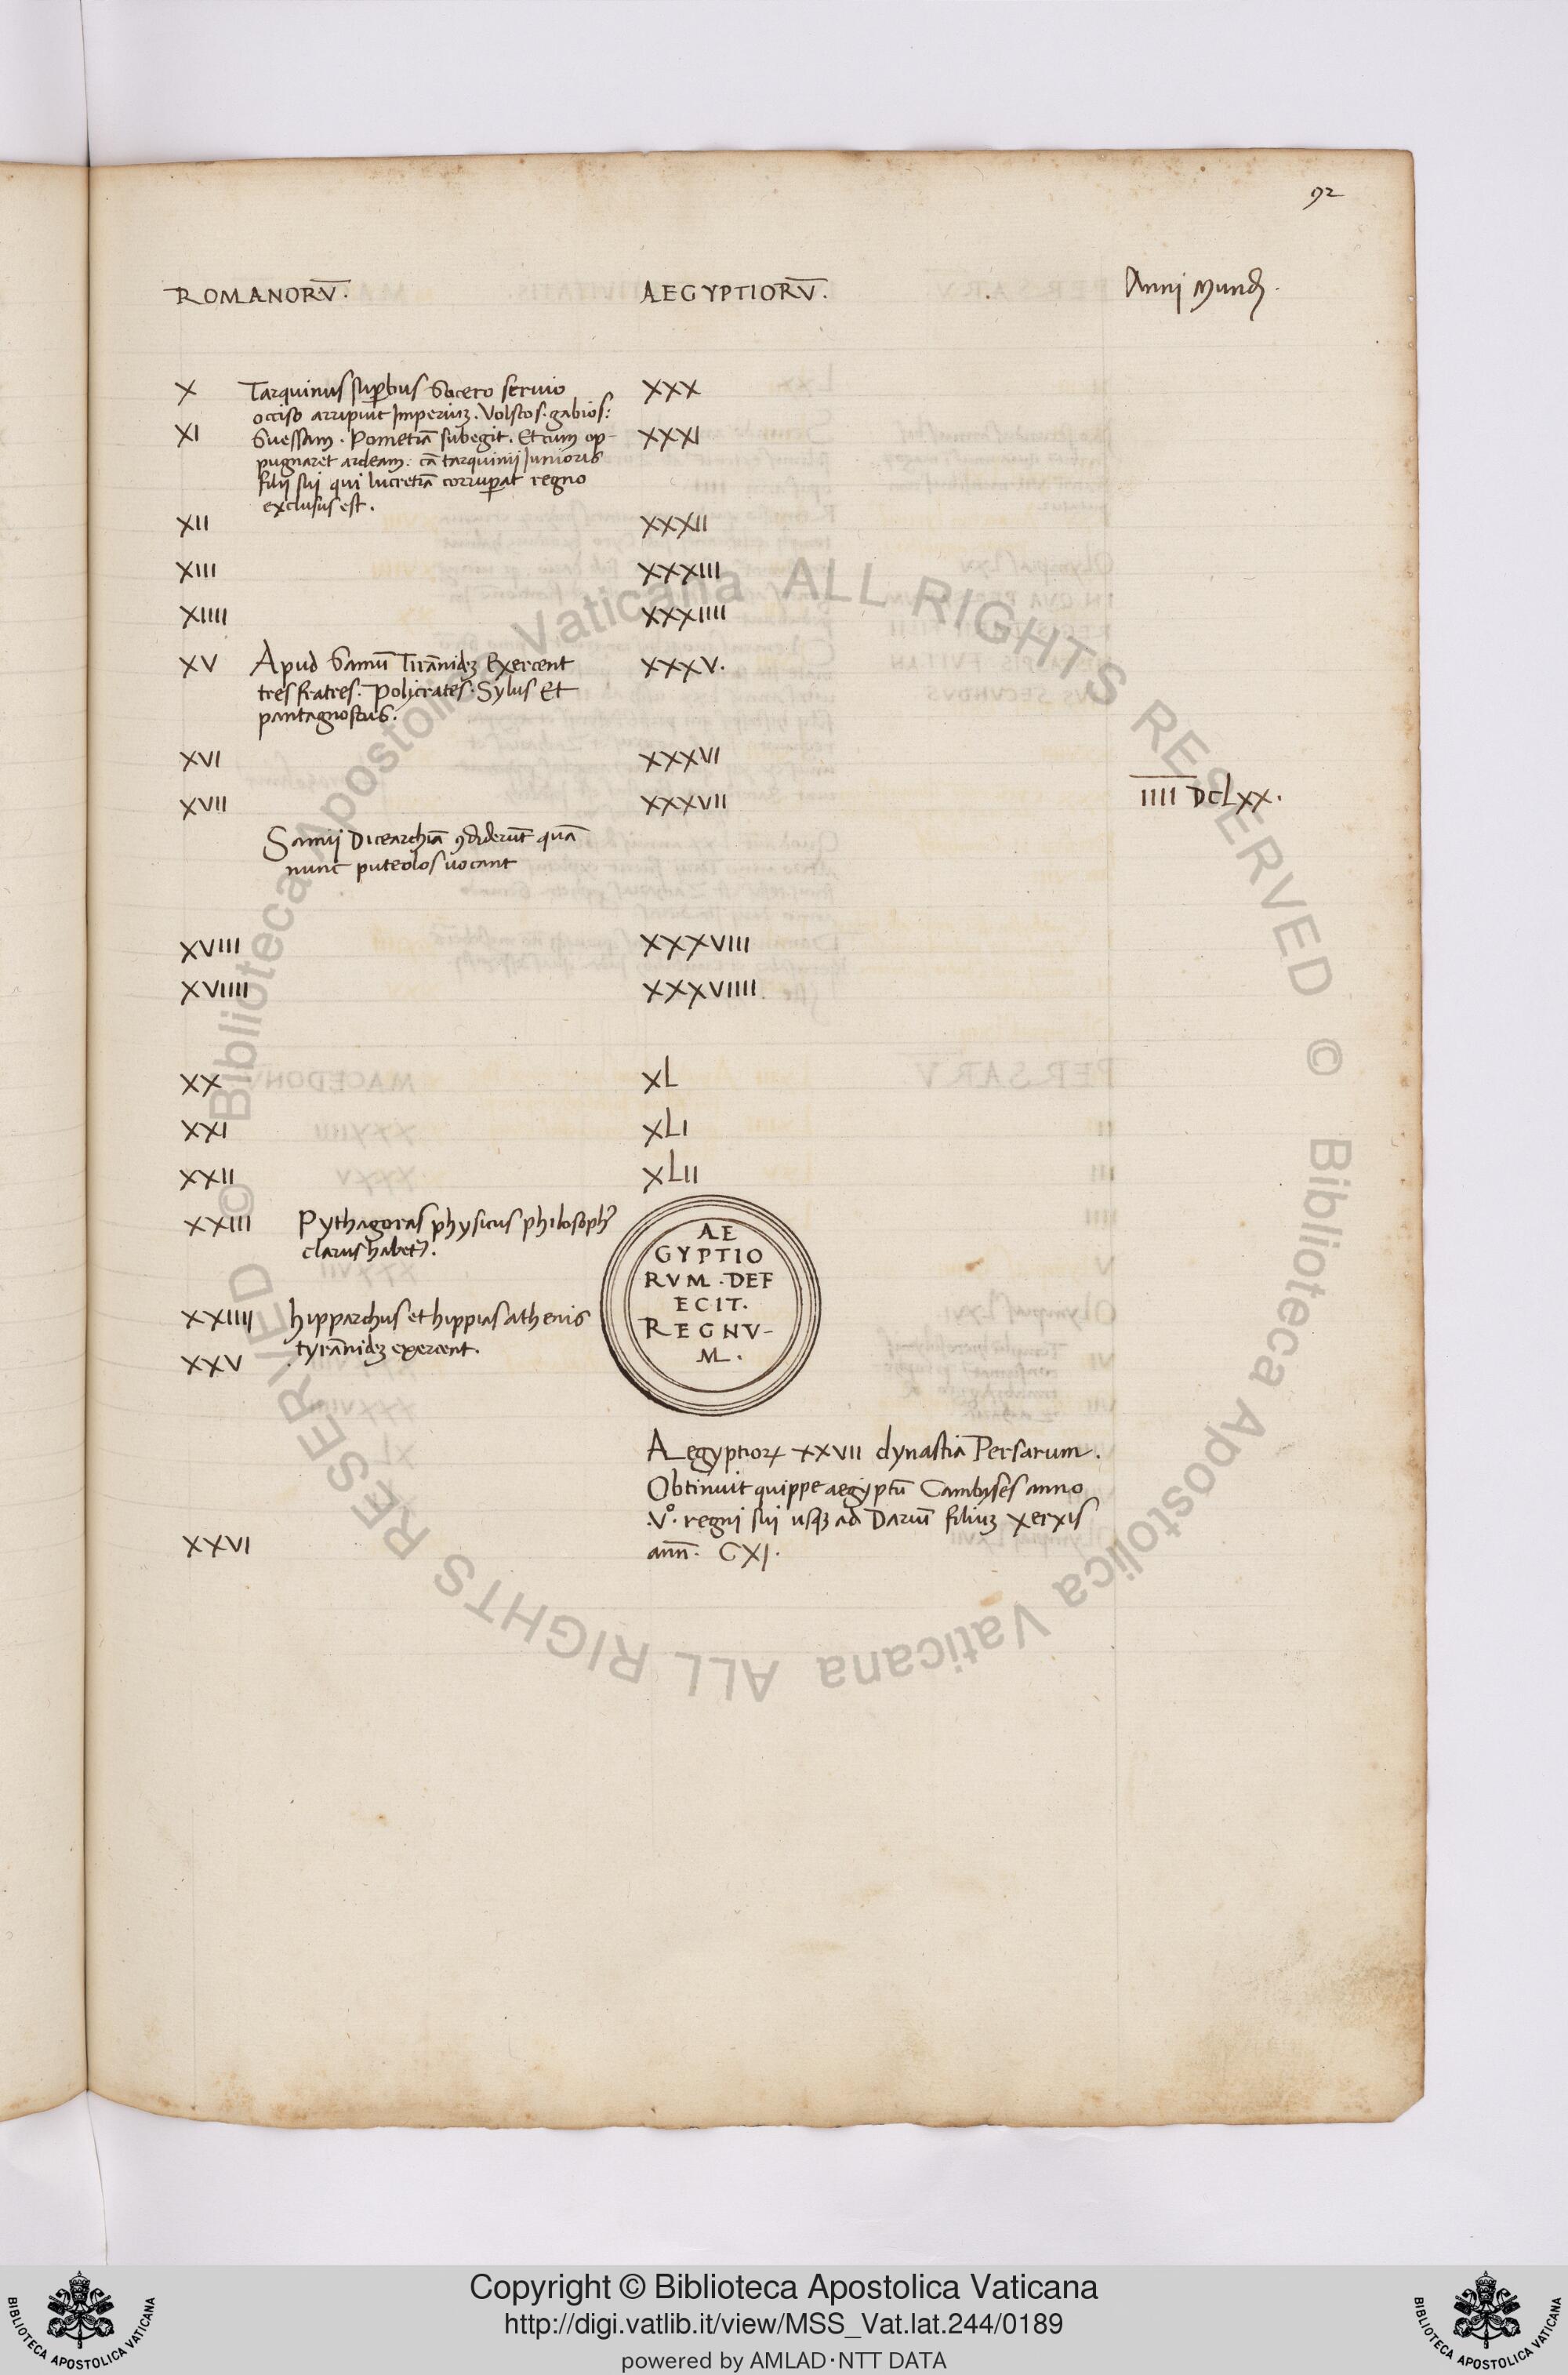 92
ROMANORV̅.
AEGYPTIORV̅.
Anni Mundi.
X
Tarquinus suꝑbus Socero seruio
XXX
occiso arripuit Imperiuꝫ. Volscos. gabios:
XI
Suessam. Pometiā subegit. Et cum op-
XXXI
pugnaret ardeam: cā tarquinij Junioris
filij sui qui lucretiā corruꝑat regno
exclusus est.
XII
XXXII
XIII
XXXIII
XIIII
XXXIIII
XV
Apud Samū Tirānideꝫ Exercent
XXXV.
tres fratres. Policrates. Sylus Et
pantagnostus.
XVI
XXXVI
XVII
XXXVII
I̅I̅I̅I̅ DCLXX.
Samij Dicearchiā ꝯdiderūt quā
nunc puteolos uocant
XVIII
XXXVIII
XVIIII
XXXVIIII
XX
XL
XXI
XLI
XXII
XLII
XXIII
Pythagoras physicus philosoph᾽
clarus habet᾽.
AE
GYPTIO
RVM. DEF
ECIT.
REGNV-
M.
XXIIII
hipparchus et hippias athenis
tyrānideꝫ exercent.
XXV
Aegyptioꝝ XXVII dynastia Persarum.
Obtinuit quippe aegyptū Cambyses anno
.Vº. regni sui usqꝫ ad Dariū filiuꝫ xerxis
XXVI
ann̄. CXI.
© Biblioteca Apostolica Vaticana ALL RIGHTS RESERVED © Biblioteca Apostolica Vaticana ALL RIGHTS RESERVED
Copyright © Biblioteca Apostolica Vaticana
http://digi.vatlib.it/view/MSS_Vat.lat.244/0189
powered by AMLAD·NTT DATA
BIBLIOTECA APOSTOLICA VATICANA
BIBLIOTECA APOSTOLICA VATICANA